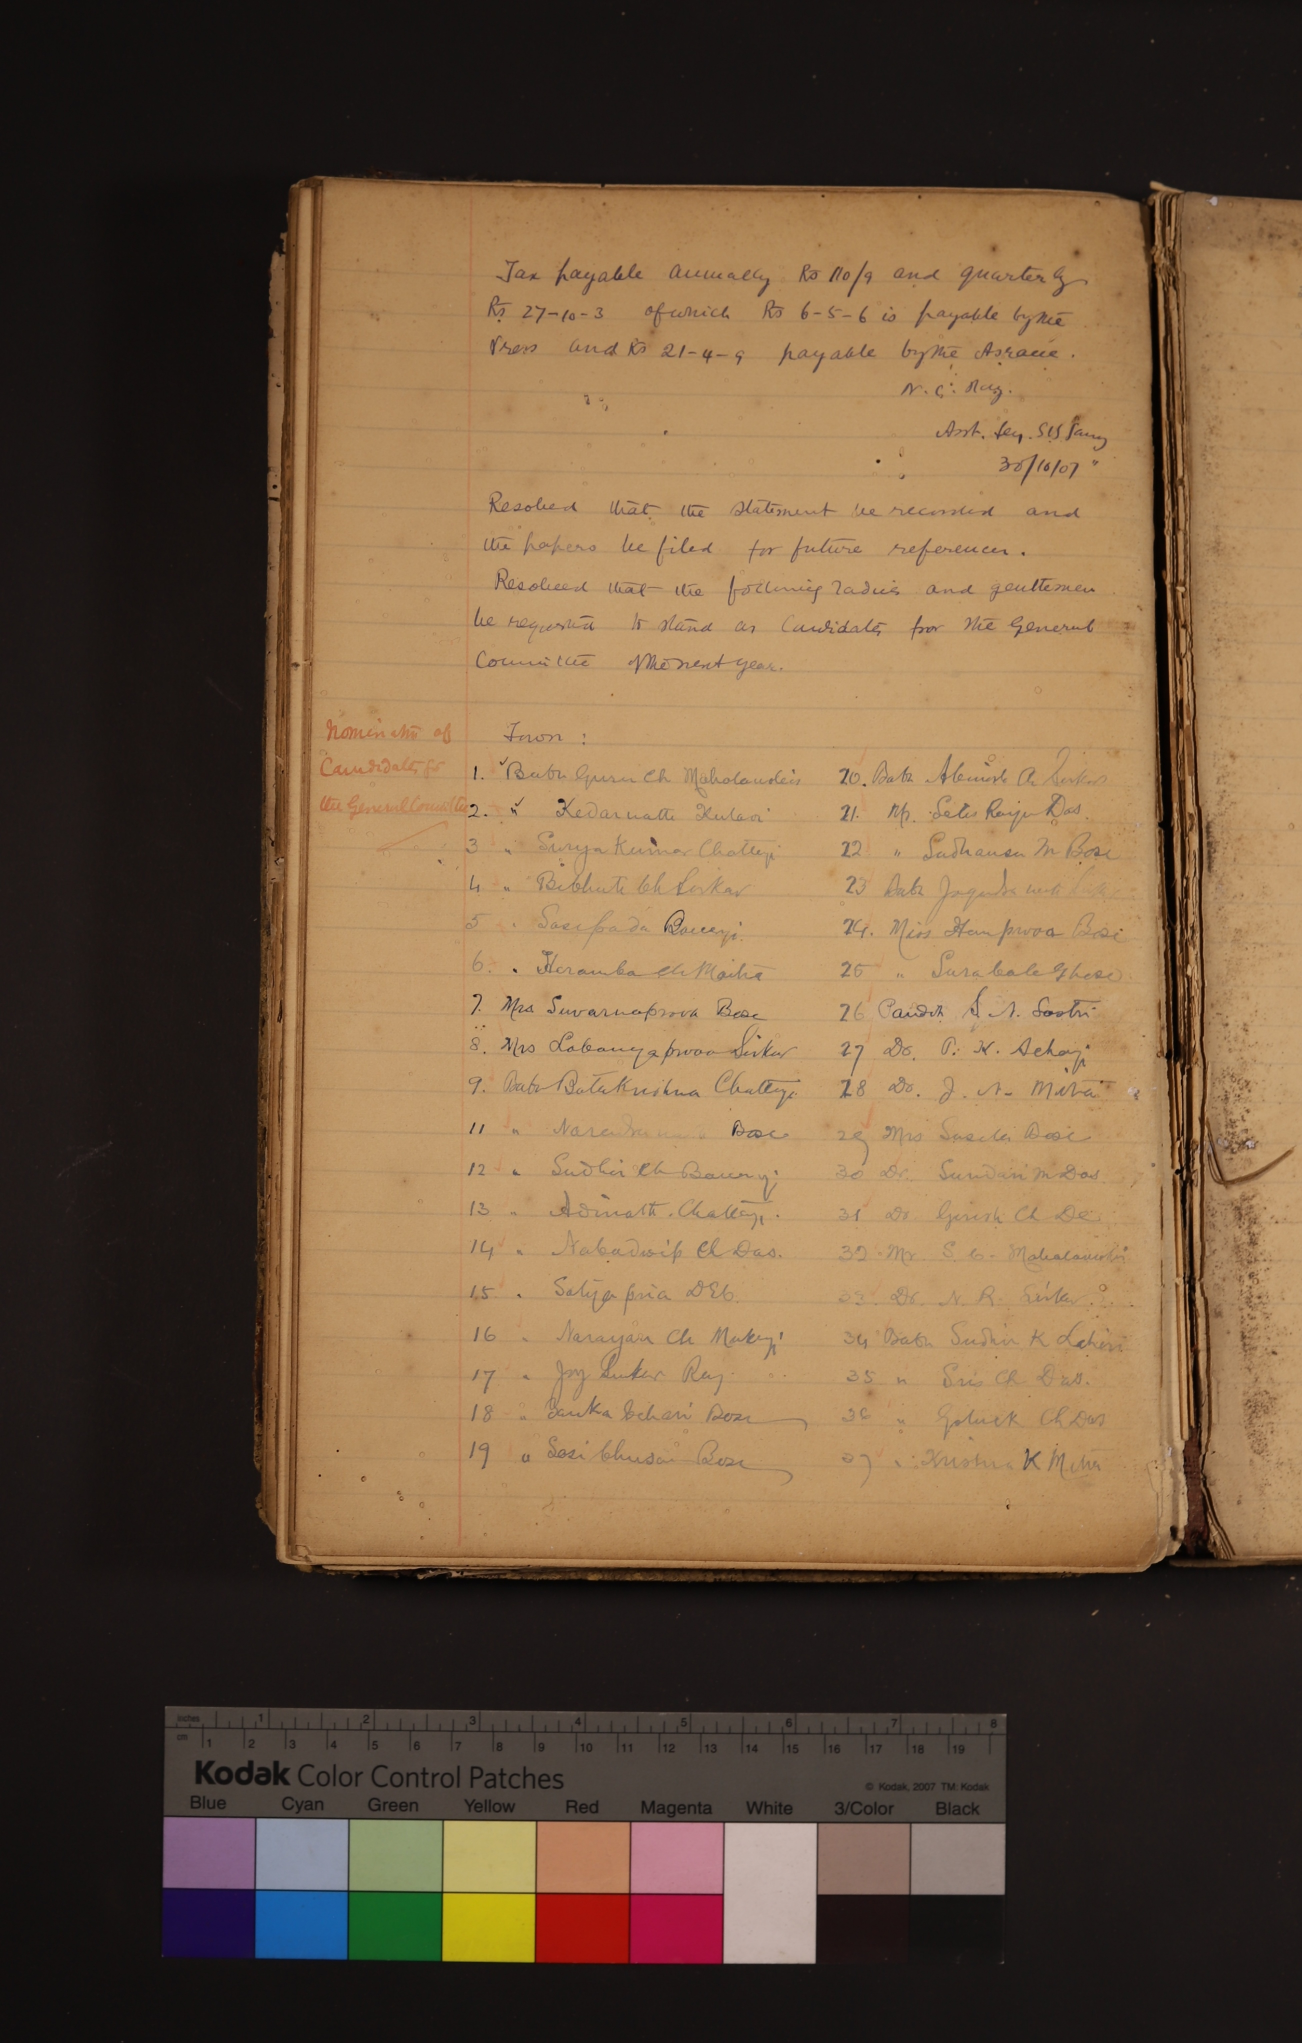 Tax payable annually Rs 110/9 and quarterly
Rs 27-10-3 of which Rs 6-5-6 is payable by the
Press and Rs 21-4-9 payable by the
N. C. Ray.
Asst. Secy. S B Samaj
30/10/07
Resolved that the statement be recorded and
the papers be filed for future references.
Resolved that the following ladies and gentlemen
be requested to stand as candidates for the General
Committee of the next year.
Nomination of
Candidates for
the General Committee
Town :
1. Babu Guru Ch Mahalanobis
2. " Kedarnath
3 " Surya Kumar Chatterji
4 " Bibhuti Ch Sirkar
5 " Sasipada Banerji
6. " Heramba Ch Maitra
7. Mrs Suvarnaprova Bose
8. Mrs Labanyaprova Sirkar
9. Babu Batakrishna Chatterji
11 " Bose
12 " Sudhir Ch Banerji
13 " Adinath Chatterji.
14 " Nabadwip Ch Das.
15 " Satyapria Deb
16 " Narayan Ch Mukerji
17 " Joy Sunker Ray
18 " Banka behari Bose
19 " Sasi bhusan Bose
20. Babu Abinash Ch Sirkar
21. Mr. Das.
22 " Sudhansu M Bose
23 Babu
24. Miss Hemprova Bose
25 " Surabala Ghose
26 Pandit S. N. Sastri
27 Dr. P. K. Acharji
28 Dr. J. N. Mitra
29 Mrs Susila Bose
30 Dr. Sundari M Das.
31 Dr Girish Ch De
32 Mr S. C. Mahalanobis
33. Dr. N. R. Sirkar
34 Babu Sudhir K Lahiri
35 " Sris Ch Das.
36 " Goluck Ch Das
37 " Krishna K Mitra
inches 1 2 3 4 5 6 7 8
cm 1 2 3 4 5 6 7 8 9 10 11 12 13 14 15 16 17 18 19
Kodak Color Control Patches
© Kodak, 2007 TM: Kodak
Blue Cyan Green Yellow Red Magenta White 3/Color Black